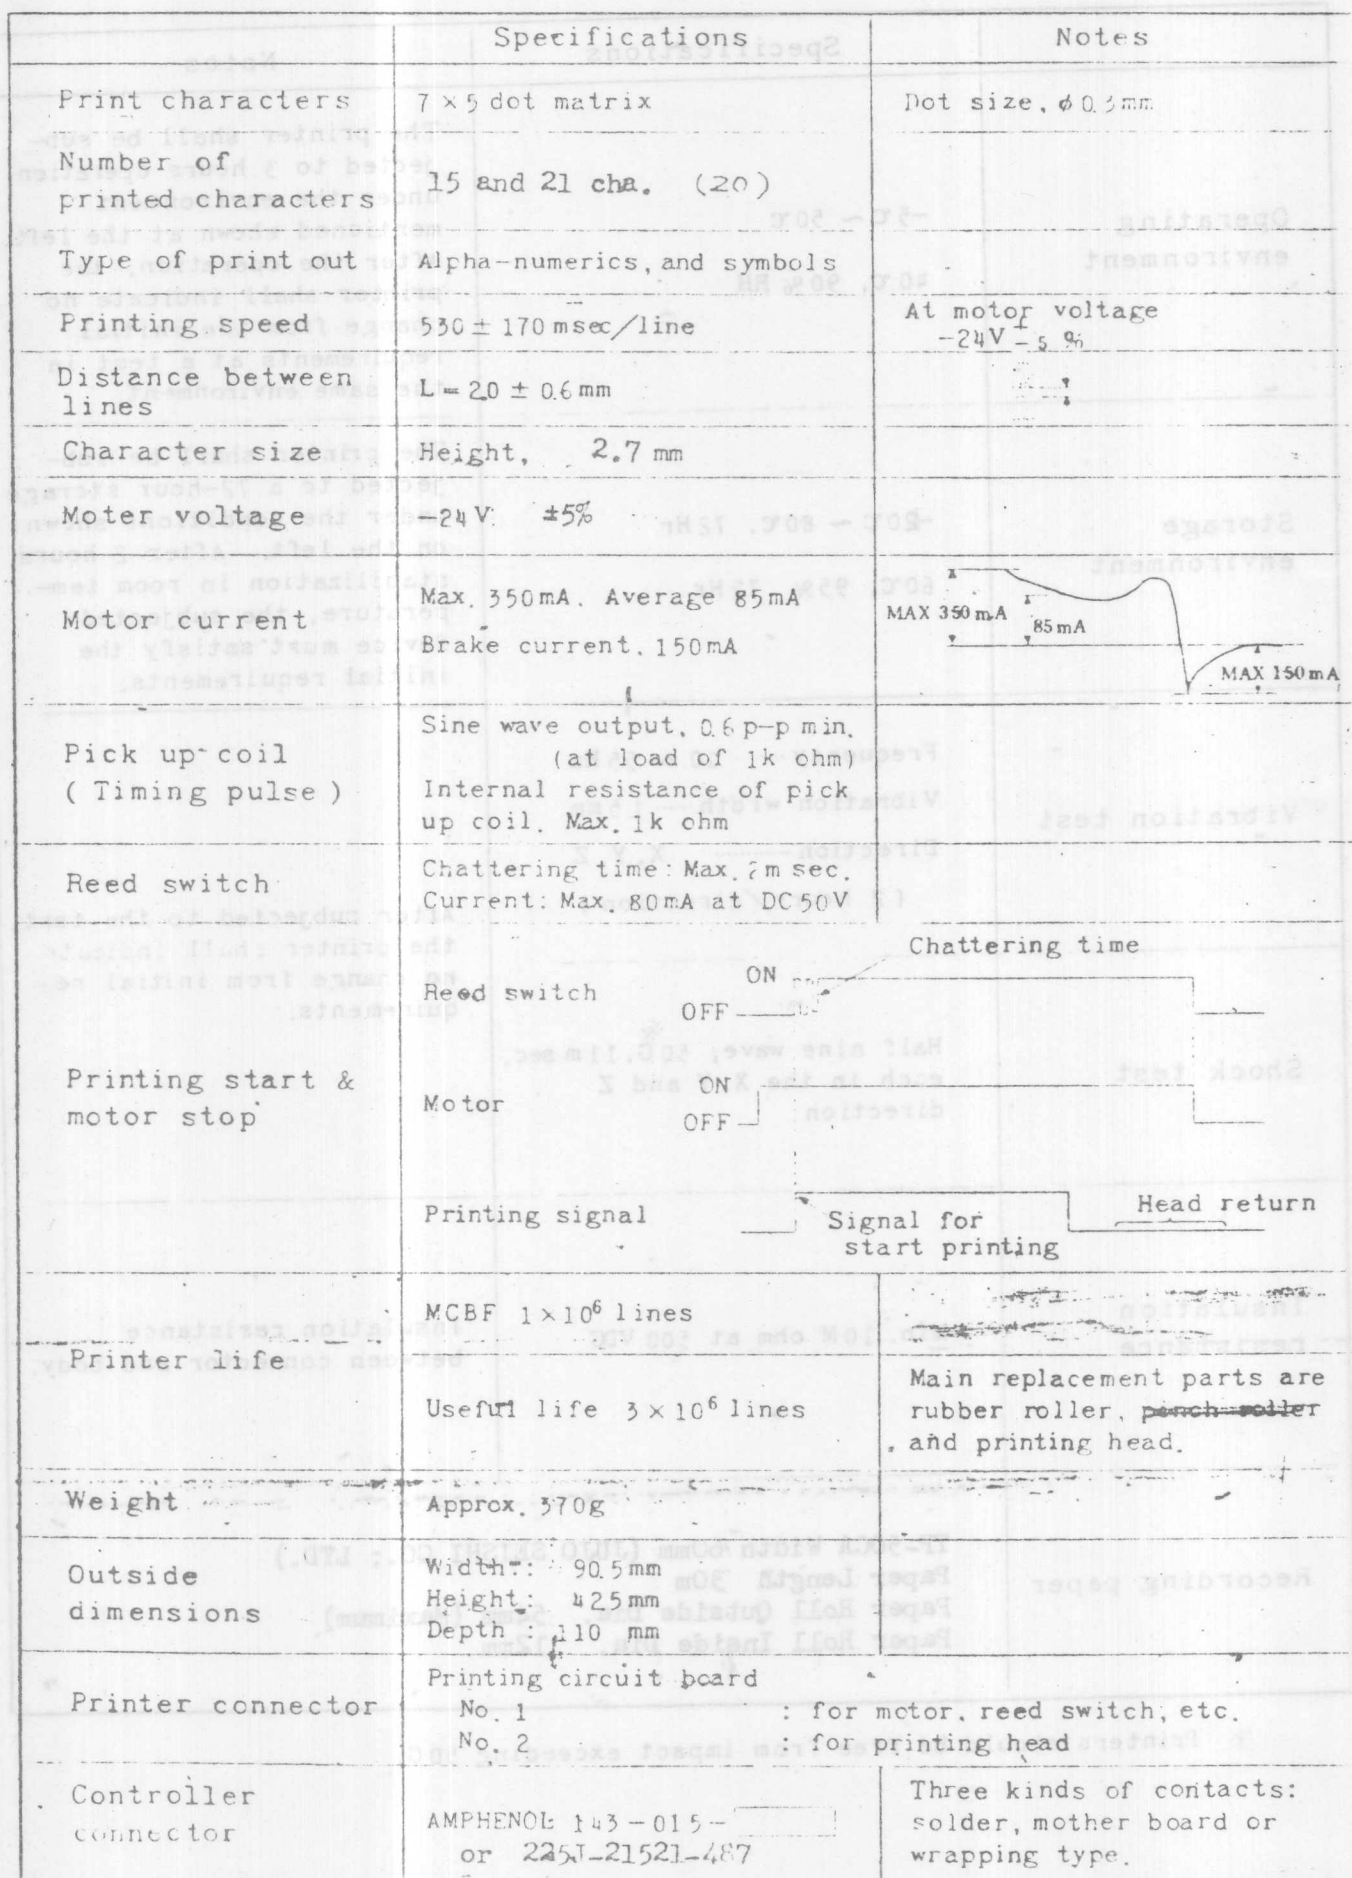 Specifications Notes
Print characters 7 × 5 dot matrix Dot size, φ 0.3mm
Number of
printed characters 15 and 21 cha. (20)
Type of print out Alpha-numerics, and symbols
Printing speed 530 ± 170 msec/line At motor voltage
-24V ± 5 %
Distance between
lines L = 2.0 ± 0.6 mm
Character size Height, 2.7 mm
Moter voltage -24 V ±5%
Motor current Max. 350mA. Average 85mA
Brake current. 150mA
MAX 350 mA
85 mA
MAX 150 mA
Pick up coil
( Timing pulse )
Sine wave output, 0.6 p-p min.
(at load of 1k ohm)
Internal resistance of pick
up coil. Max. 1k ohm
Reed switch
Chattering time: Max. m sec.
Current: Max. 80mA at DC 50V
Printing start &
motor stop
Chattering time
Reed switch ON
OFF
Motor ON
OFF
Printing signal
Signal for
start printing
Head return
Printer life
MCBF 1 × 10⁶ lines
Useful life 3 × 10⁶ lines
Main replacement parts are
rubber roller, pinch roller
and printing head.
Weight Approx. 370g
Outside
dimensions
Width : 90.5mm
Height : 42.5mm
Depth : 110 mm
Printer connector
Printing circuit board
No. 1 : for motor, reed switch, etc.
No. 2 : for printing head
Controller
connector
AMPHENOL 143-015-
or 225J-21521-487
Three kinds of contacts:
solder, mother board or
wrapping type.